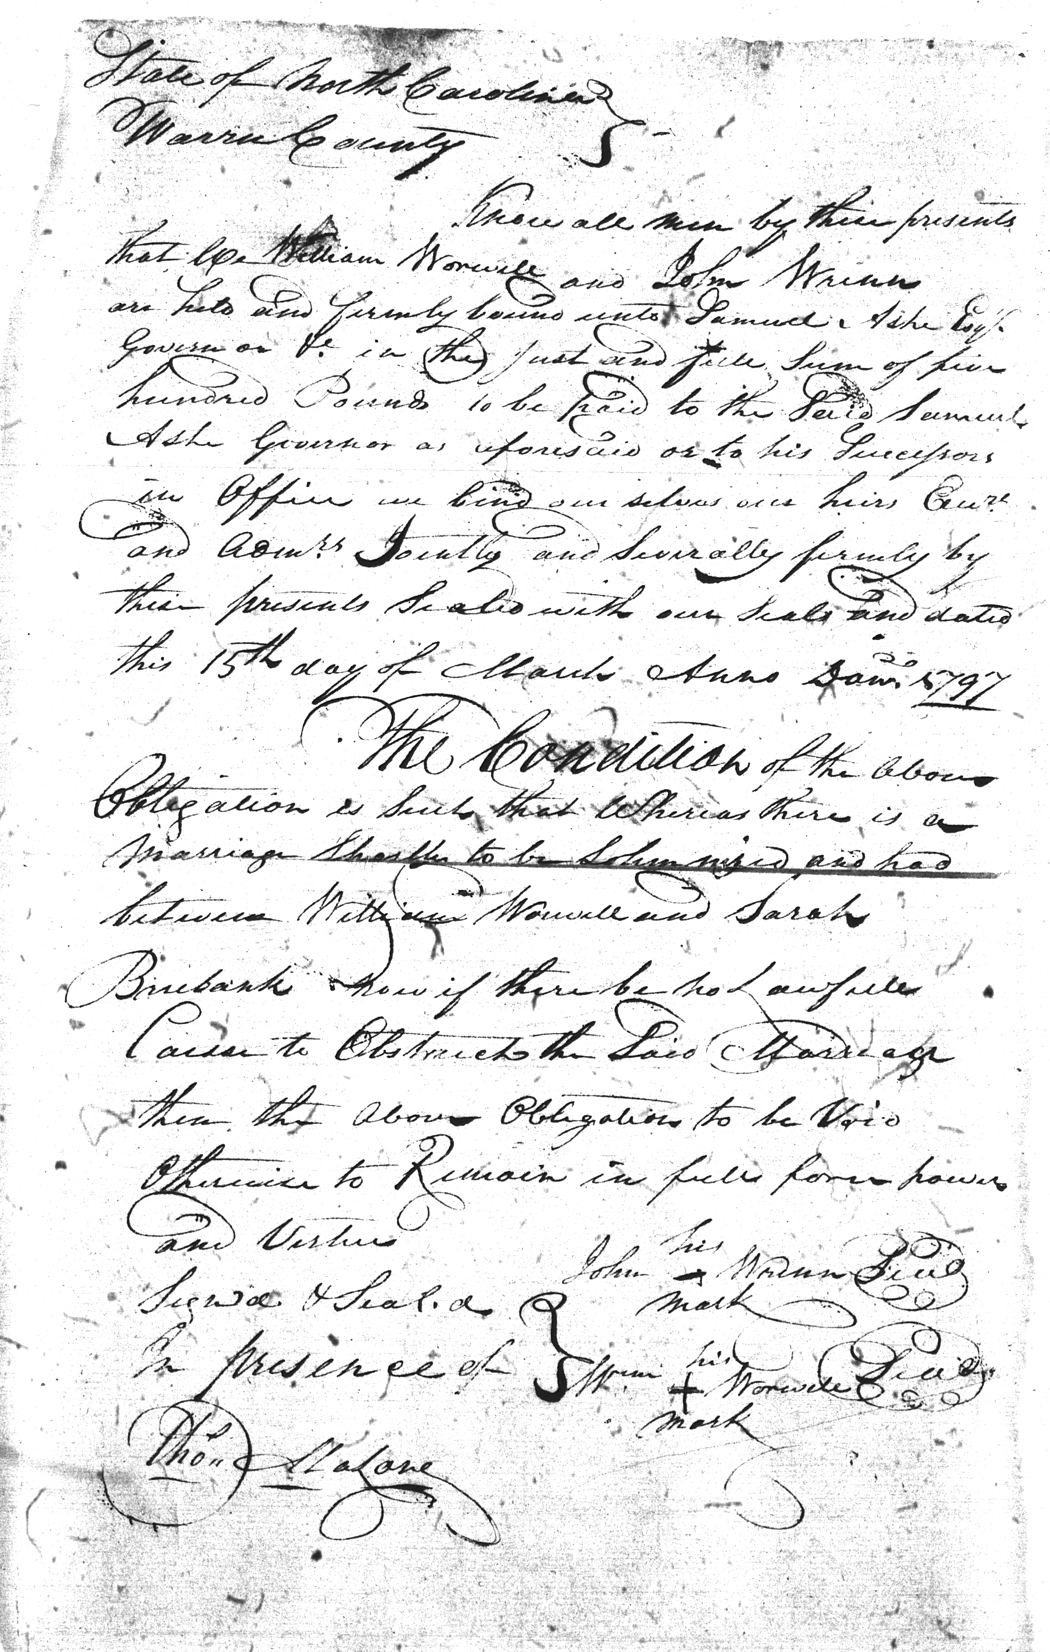 State of North Carolina
Warren County
Know all men by these presents
that We William Worrell and John Wrenn
are held and firmly bound unto Samuel Ashe Esqr
Governor &c in the Just and full Sum of five
hundred Pounds to be paid to the Said Samuel
Ashe Governor as aforesaid or to his Successors
in Office we bind our selves our heirs Exurs
and Admrs Jointly and Severally firmly by
these presents Sealed with our Seals and dated
this 15th day of March Anno Dom. 1797
The Condition of the above
Obligation is Such that Whereas there is a
Marriage Shortly to be Solemnized and had
between William Worrell and Sarah
now if there be no Lawfull
Cause to Obstruct the Said Marriage
then the above Obligation to be Void
Otherwise to Remain in full force power
and Virtue
Signd & Seald
In presence of
John his mark Wrenn Seal
Wm his mark Worrell Seal
Thos Malone